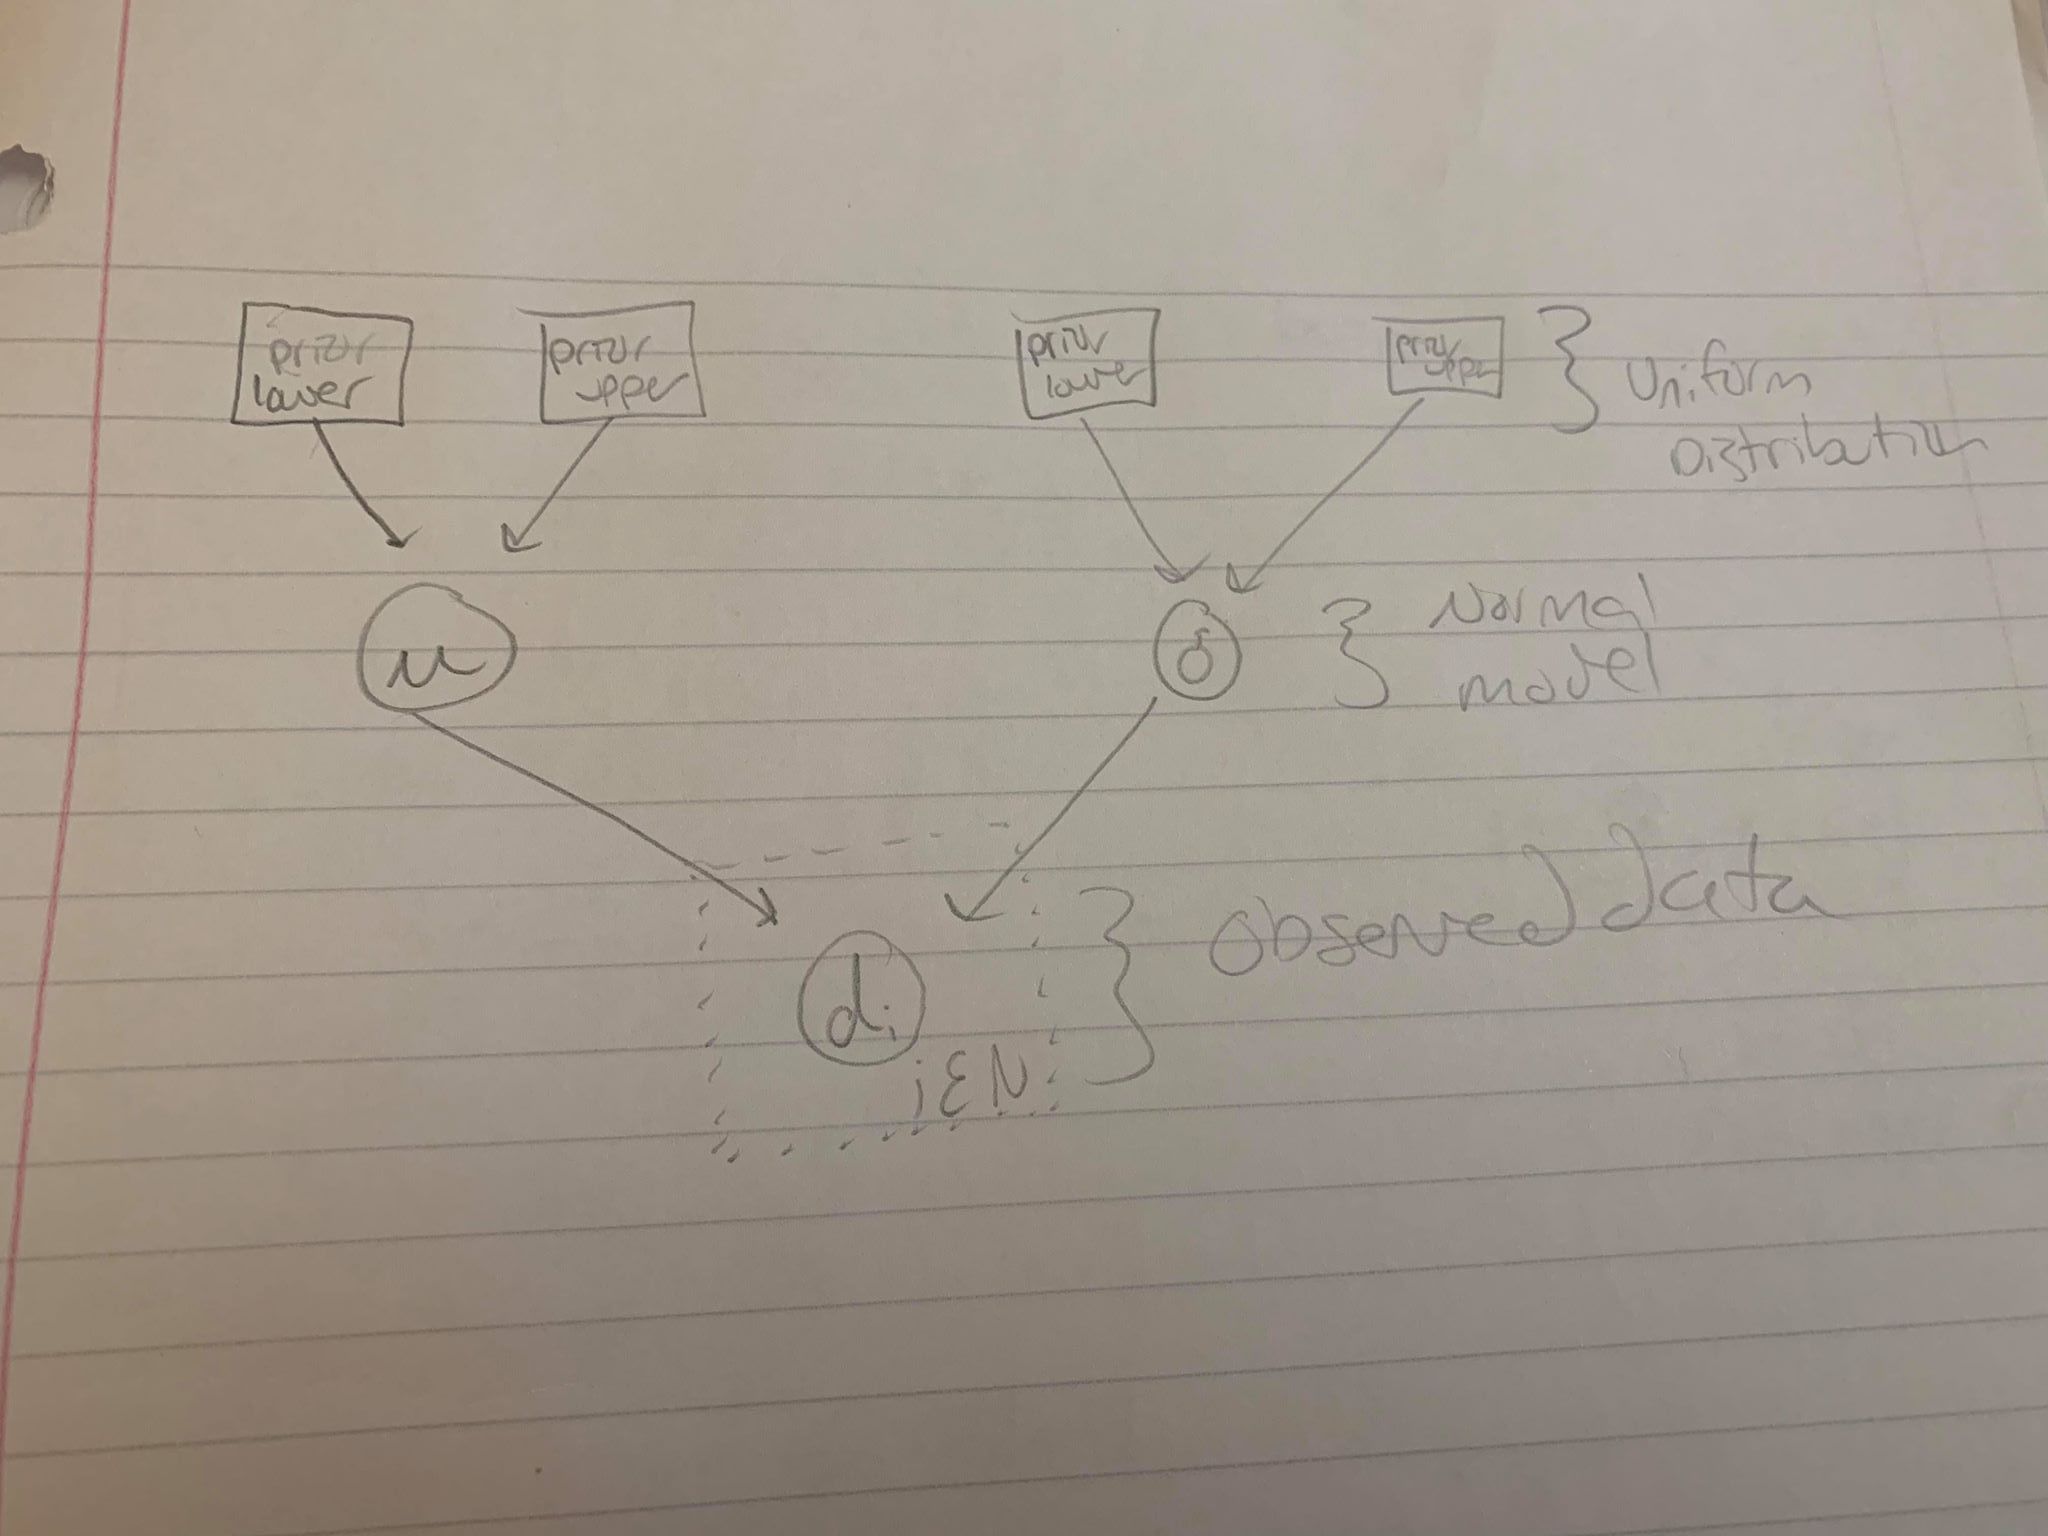 prior
lower
prior
upper
prior
lower
prior
upper
Uniform
Distribution
μ
σ
Normal
model
di
i∈N
observed data